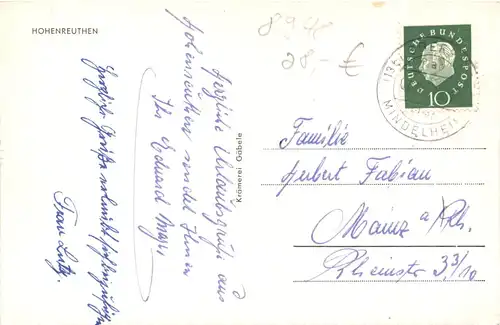 HOHENREUTHEN
8948
28,- €
DEUTSCHE BUNDESPOST
10
MINDELHEIM
Herzliche Urlaubsgrüße aus
Hohenreuthen sendet Ihnen
Ihr Eduard
Herzliche Grüße
Frau Lutz.
Krämerei Gäbele
Familie
Herbert Fabian
Mainz a/Rh.
Rheinstr 33/10